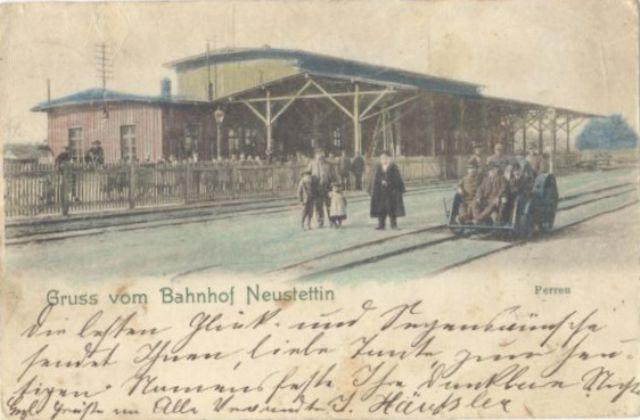 Gruss vom Bahnhof Neustettin
Perron
Die besten Glück- und Segenswünsche
sendet Ihnen, liebe Tante, zum heu-
tigen Namensfeste Ihre dankbare Nichte
Herzl. Grüße an Alle Verwandte J. Häußler